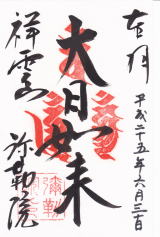 奉拝
平成二十五年六月三日
大日如来
祥雲山
弥勒院